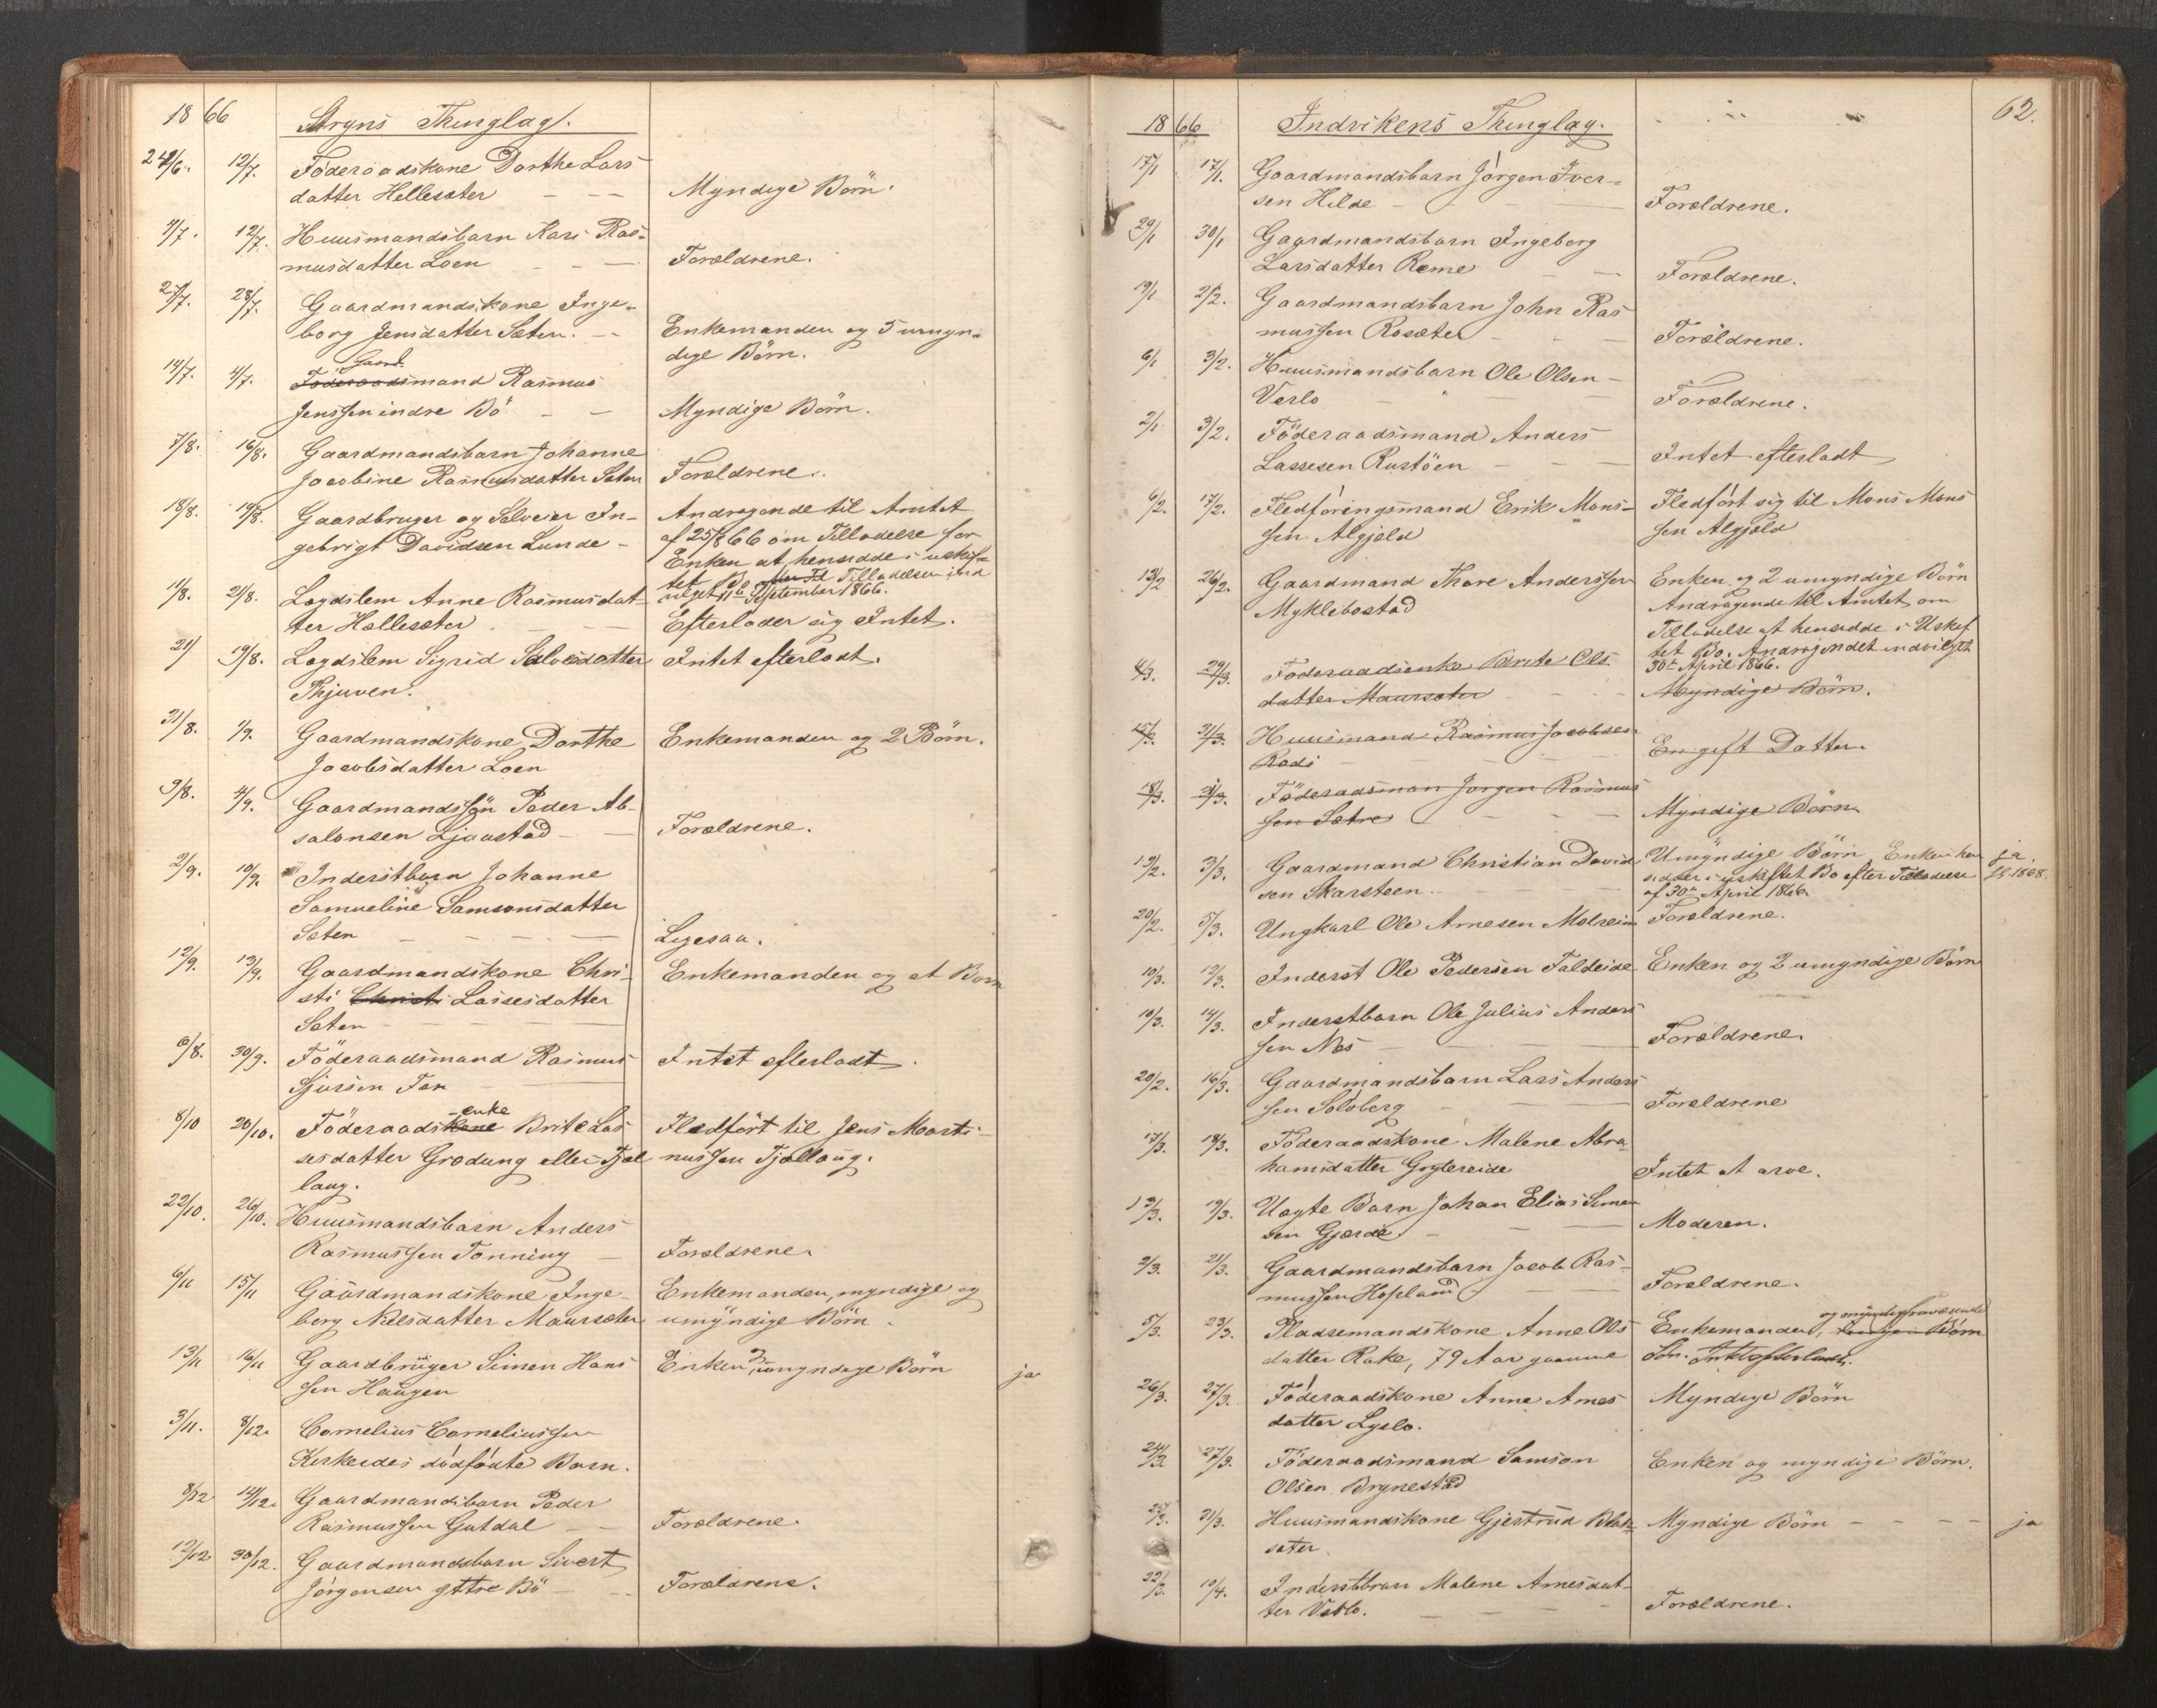 1866 Stryns Thinglag.
24/6. 12/7. Föderaadskone Dorthe Lars
datter Hellesæter - - - Myndige Börn.
4/7. 12/7. Huusmandsbarn Kari Ras-
musdatter Loen - - - Forældrene.
27/7. 28/7. Gaardmandskone Inge-
borg Jensdatter Sæten. - - Enkemanden og 5 umyn-
dige Börn.
Gaard
14/7. 4/7. Föderaadsmand Rasmus
Jenssen indre Bö - - Myndige Börn.
7/8. 16/8. Gaardmandsbarn Johanne
Jacobine Rasmusdatter Sæten Forældrene.
18/8. 19/8. Gaardbruger og Selveier In- Andragende til Amtet
gebrigt Davidsen Lunde - af 25/8 66 om Tilladelse for
Enken at hensidde i uskif-
tet Bo Tilladelsen ind
vilget 11te September 1866.
11/8. 21/8. Lægdslem Anne Rasmusdat-
ter Hellesæter - - - Efterlader sig Intet.
21/ 19/8. Lægdslem Sigrid Salvesdatter Intet efterladt.
Thjuven.
31/8. 1/9. Gaardmandskone Dorthe Enkemanden og 2 Börn.
Jacobsdatter Loen
9/8. 4/9. Gaardmandssön Peder Ab-
salonsen Ljaastad - - Forældrene.
2/9. 10/9. Inderstbarn Johanne
Samueline Samsonsdatter
Sæten - - - - Ligesaa.
12/9. 13/9. Gaardmandskone Chri- Enkemanden og et Barn
sti Christi Lassesdatter
Sæten - - - -
6/8. 30/9. Föderaadsmand Rasmus Intet efterladt.
Sjursen Ten -
-enke
8/10 20/10. Föderaadskone Brite Las- Fledfört til Jens Marti-
sesdatter Grodung eller Tjel nussen Tjellaug.
laug.
22/10. 26/10. Huusmandsbarn Anders
Rasmussen Tonning - Forældrene.
6/11 15/11 Gaardmandskone Inge- Enkemanden, myndige og
borg Nilsdatter Maurseter umyndige Börn.
13/11 16/11 Gaardbruger Simen Hans Enken 3 umyndige Börn ja
sen Haugen
3/11. 8/12. Cornelius Corneliussen
Kirkeides dödfödte Barn.
8/12 14/12. Gaardmandsbarn Peder
Rasmussen Gutdal - - Forældrene.
12/12 30/12. Gaardmandsbarn Sivert
Jörgensen yttre Bö - - - Forældrene.
62.
1866 Indvikens Thinglag.
17/1 17/1. Gaardmandsbarn Jörgen Iver-
sen Hilde - - - Forældrene.
29/1 30/1 Gaardmandsbarn Ingeborg
Larsdatter Reme - - Forældrene.
19/1 2/2. Gaardmandsbarn John Ras
mussen Rosæter - - - Forældrene.
6/1 3/2. Huusmandsbarn Ole Olsen -
Verlo - - - - Forældrene.
2/1 3/2. Föderaadsmand Anders
Lassesen Rustöen - - - Intet efterladt
6/2. 17/2. Fledföringsmand Erik Mons- Fledfört sig til Mons Mons
sen Algjeld sen Algjeld
13/2 26/2. Gaardmand Thore Anderssen Enken og 2 umyndige Börn
Myklebostad Andragende til Amtet om
Tilladelse at hensidde i Uskif
tet Bo. Andragendet indvilget
30te April 1866.
4/3. 29/3. Föderaadsenke Brite Ols
datter Maurseter - - - Myndige Börn.
15/3. 31/3. Huusmand Rasmus Jacobsen
Rodi - - - - En gift Datter.
18/3. 31/3. Föderaadsman Jörgen Rasmus
sen Sætre - - - Myndige Börn
19/2. 3/3. Gaardmand Christian David Umyndige Börn Enken hen ja.
sen Skarsteen. - - sidder i uskiftet Bo efter Tilladelse 1868.
af 30te April 1866.
20/2. 5/3. Ungkarl Ole Arnesen Molreim Forældrene.
10/3. 12/3. Inderst Ole Pedersen Faldeide Enken og 2 umyndige Börn
10/3. 14/3. Inderstbarn Ole Julius Anders
sen Nes - - - Forældrene.
20/2. 16/3. Gaardmandsbarn Lars Anders
sen Solvberg - - - Forældrene
17/3. 18/3. Föderaadskone Malene Abra
hamsdatter Grytereide Intet at arve.
13/3. 19/3. Uægte Barn Johan Elias Simen
sen Gjerde. - - - Moderen.
2/3. 21/3. Gaardmandsbarn Jacob Ras-
mussen Hopland - - Forældrene.
og myndig fraværende
5/3. 23/3. Pladsemandskone Anne Ols Enkemanden, Börn
datter Rake, 79 Aar gammel Sön. Intet efterladt.
26/3. 27/3. Föderaadskone Anne Arnes Myndige Börn
datter Lyslo.
24/3 27/3. Föderaadsmand Samson Enken og myndige Börn.
Olsen Brynestad
25/3. 31/3. Huusmandskone Gjertrud Blak- Myndige Börn - - - - ja
sæter.
22/3. 10/4. Inderstbarn Malene Arnesdat-
ter Verlo. - - - - Forældrene.